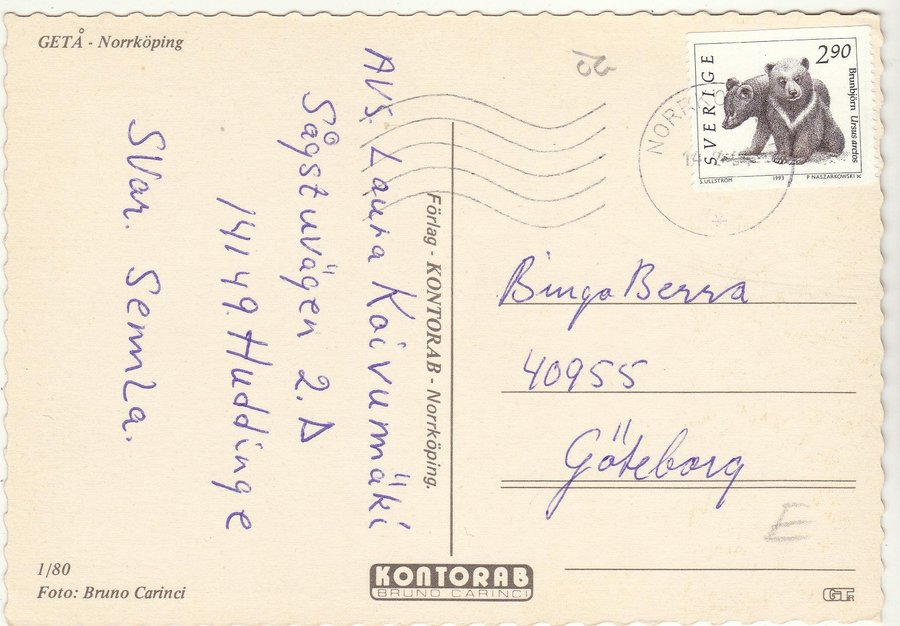 GETÅ - Norrköping
20
SVERIGE
2.90
Brunbjörn Ursus arctos
S. ULLSTRÖM 1993 P. NASZARKOWSKI SC
AVS. Laura Koivumäki
Sågstuvägen 2.A
14149. Huddinge
Svar. Semla.
Förlag - KONTORAB - Norrköping.
Bingo Berra
40955
Göteborg
E
1/80
Foto: Bruno Carinci
KONTORAB
BRUNO CARINCI